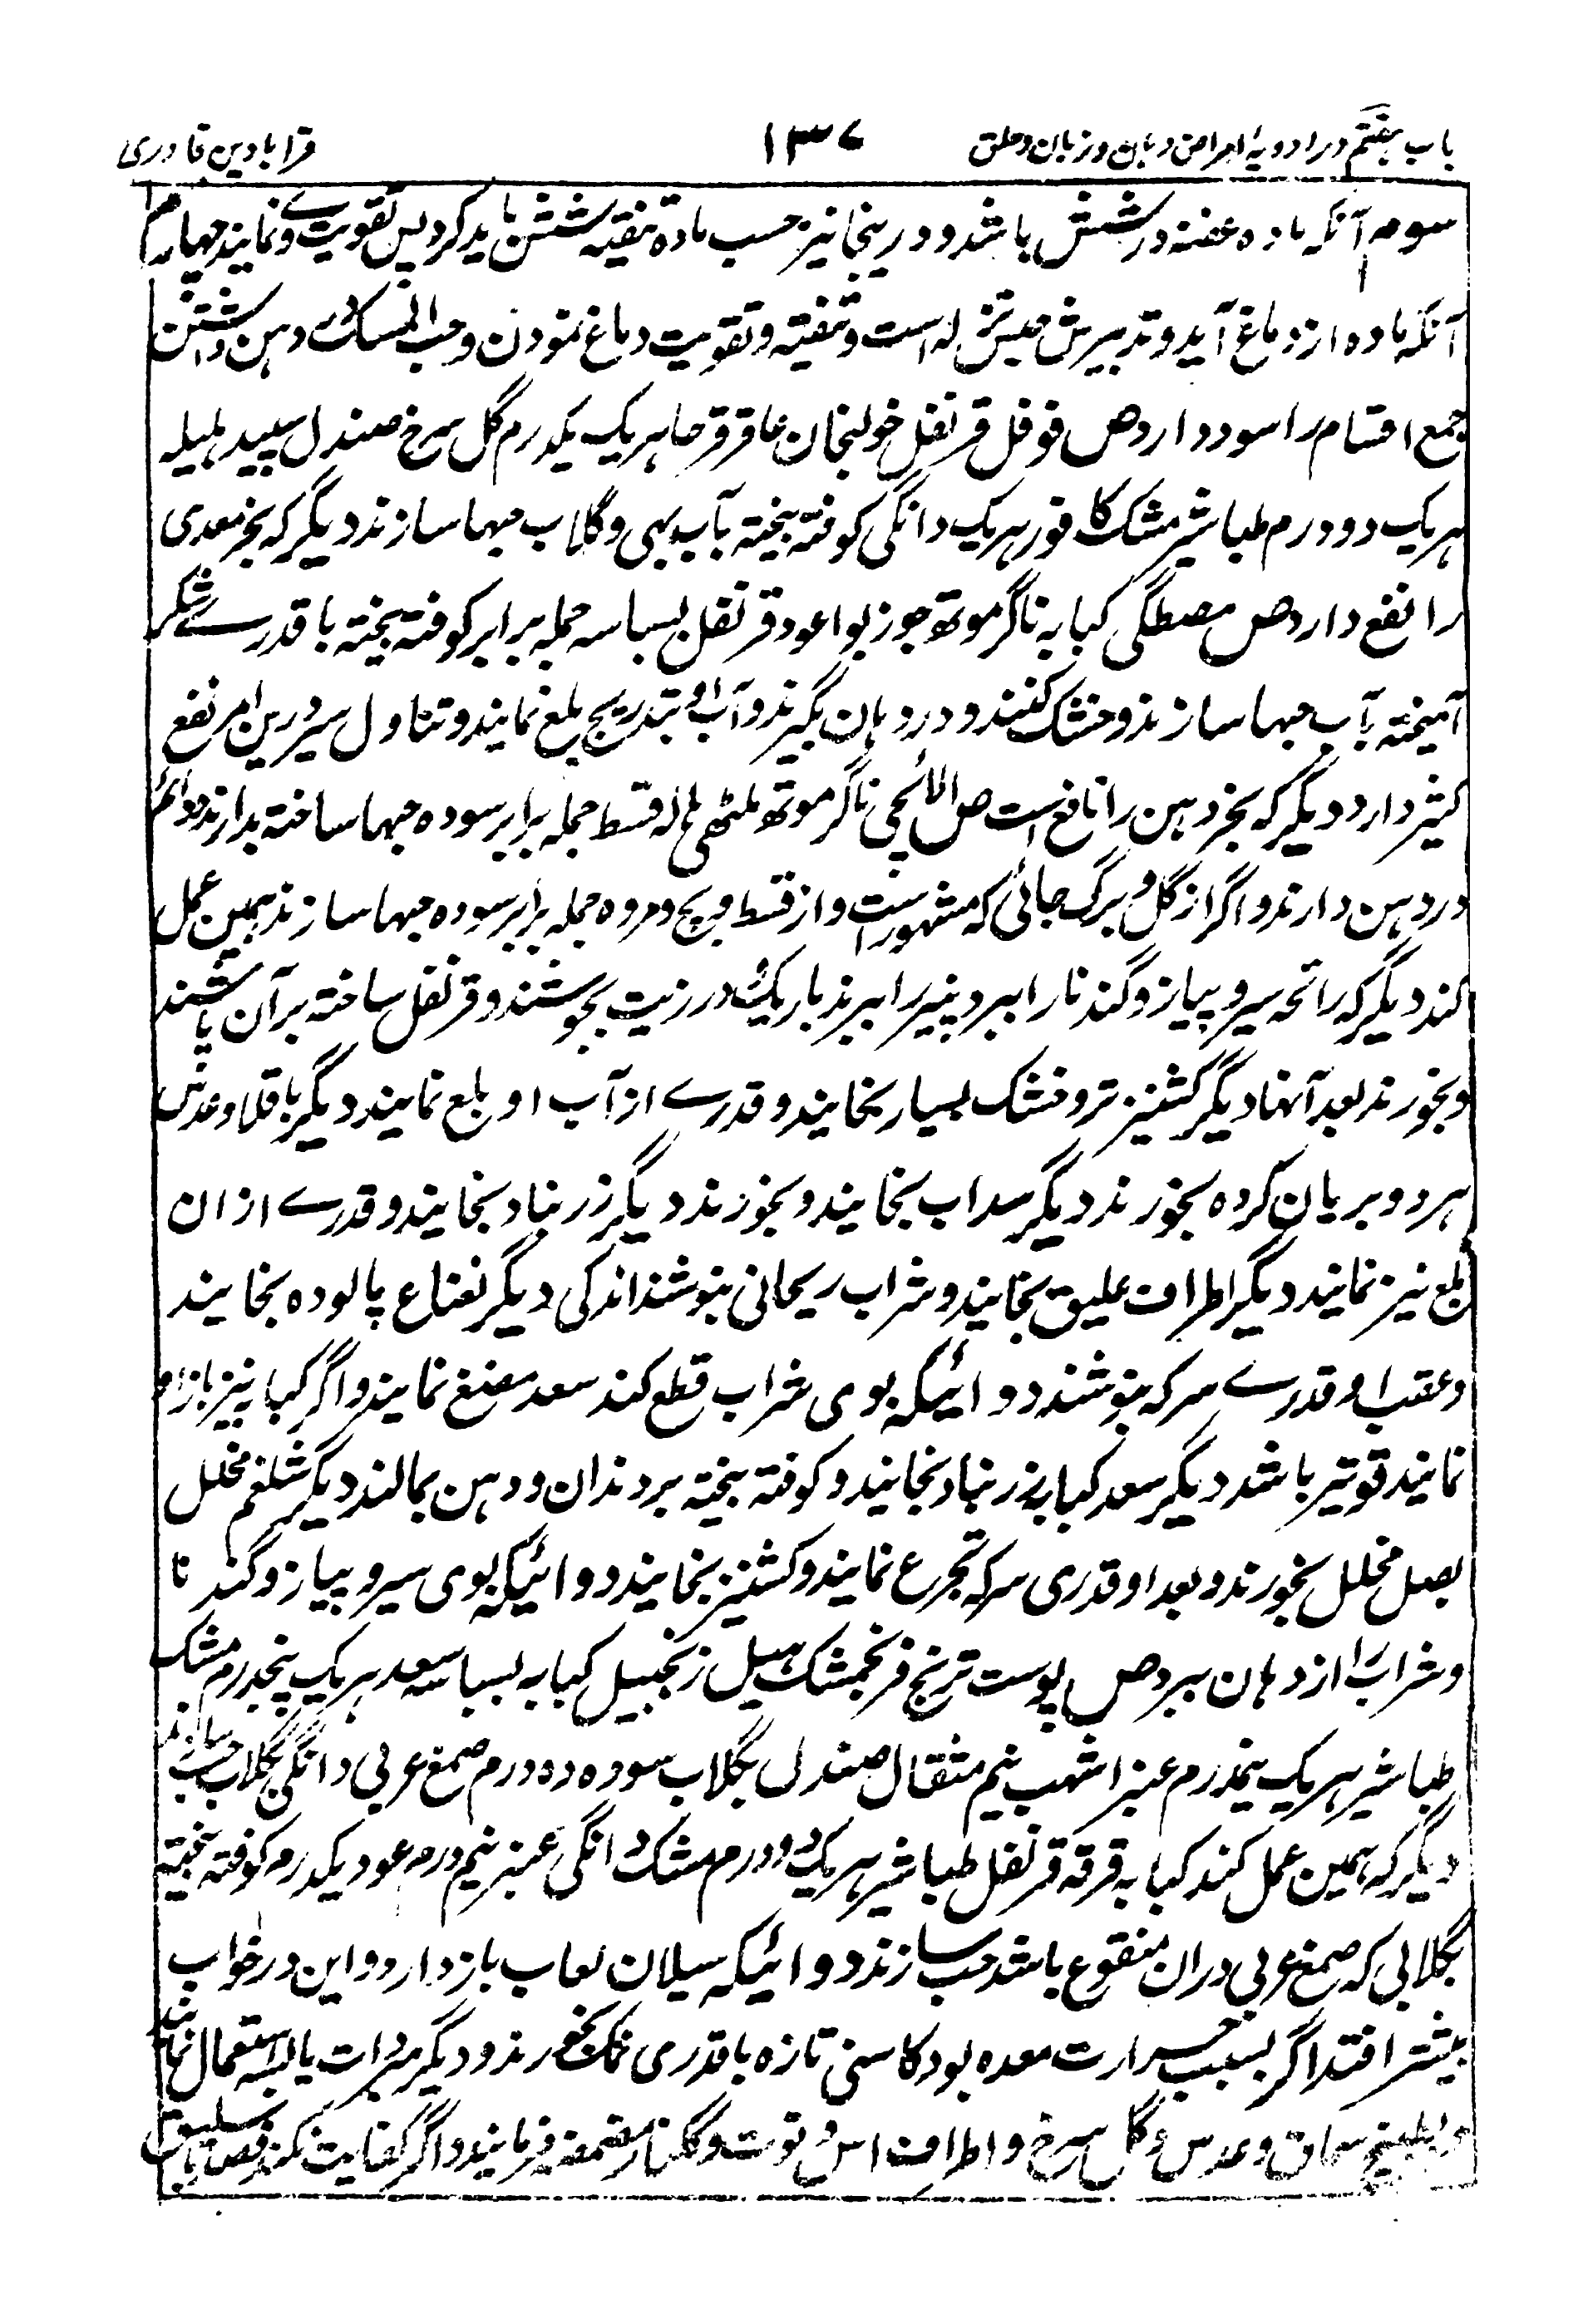 باب هفتم در ادویهٔ امراض دهان و زبان و حلق ۱۳۷ قرابادین قادری
سوم آنکه ماده عفنه در شش باشد و درینجا نیز حسب ماده تنقیه شش باید کرد پس تقویت وے نمایند چهارم
آنکه ماده از دماغ آید و تدبیرش نزله است و تنقیه و تقویت دماغ نمودن و حب المسک در دهن داشتن
جمع اقسام را سود دارد ص فوفل قرنفل خولنجان عاقرقرحا هریک یکدرم گل سرخ صندل سپید هلیله
هریک دو درم طباشیر مشک کافور هریک دانگی کوفته بیخته بآب بهی و گلاب حبها سازند دیگر که بخر معدی
را نفع دارد ص مصطگی کبابه ناگرموتهه جوزبوا عود قرنفل بسباسه جمله برابر کوفته بیخته با قدرے شکر
آمیخته بآب حبها سازند و خشک کنند و در دهان بگیرند و آب او بتدریج بلع نمایند و تناول سیر درین امر نفع
کثیر دارد دیگر که بخر دهن را نافع است ص الائچی ناگرموتهه ملٹهی قسط جمله برابر سوده حبها ساخته بدارند و دائم
در دهن دارند و اگر از گل و برگ جائی که مشهور است و از قسط و بچ و مروه جمله برابر سوده حبها سازند همین عمل
کند دیگر که رائحه سیر و پیاز و گندنا را ببرد پنیر را ببرند باریک و در زیت بجوشند و قرنفل ساخته بر آن پاشند
و بخورند بعد آنها دیگر کشنیز تر و خشک بسیار بخایند و قدرے از آب او بلع نمایند دیگر باقلا و عدس
هر دو بریان کرده بخورند دیگر سداب بخایند و بخورند دیگر زرنباد بخایند و قدرے ازان
بلع نیز نمایند دیگر اطراف علیق بخایند و شراب ریحانی بنوشند اندکی دیگر نعناع پالوده بخایند
و عقب او قدرے سرکه بنوشند دوائیکه بوی شراب قطع کند سعد مضغ نمایند و اگر کبابه نیز با او
نمایند قویتر باشد دیگر سعد کبابه زرنباد بخایند و کوفته بیخته بر دندان و دهن بمالند دیگر شلغم مخلل
بصل مخلل بخورند و بعد او قدری سرکه تجرع نمایند و کشنیز بخایند دوائیکه بوی سیر و پیاز و گندنا
و شراب را از دهان ببرد ص پوست ترنج فرنجمشک هیل زنجبیل کبابه بسباسه سعد هریک پنجدرم مشک
طباشیر هریک نیمدرم عنبر اشهب نیم مثقال صندل بگلاب سوده ده درم صمغ عربی دانگی بگلاب حب سازند
دیگر که همین عمل کند کبابه قرفه قرنفل طباشیر هریک دو درم مشک دانگی عنبر نیم درم عود یکدرم کوفته بیخته
بگلابی که صمغ عربی دران منقوع باشد حب سازند دوائیکه سیلان لعاب باز دارد و این در خواب
بیشتر افتد اگر بسبب حرارت معده بود کاسنی تازه با قدری نمک بخورند و دیگر مبردات یابسه استعمال نمایند
سماق و عدس و گل سرخ و اطراف آس و توت و گلنار مضمضه فرمایند و اگر کفایت نکند فصد